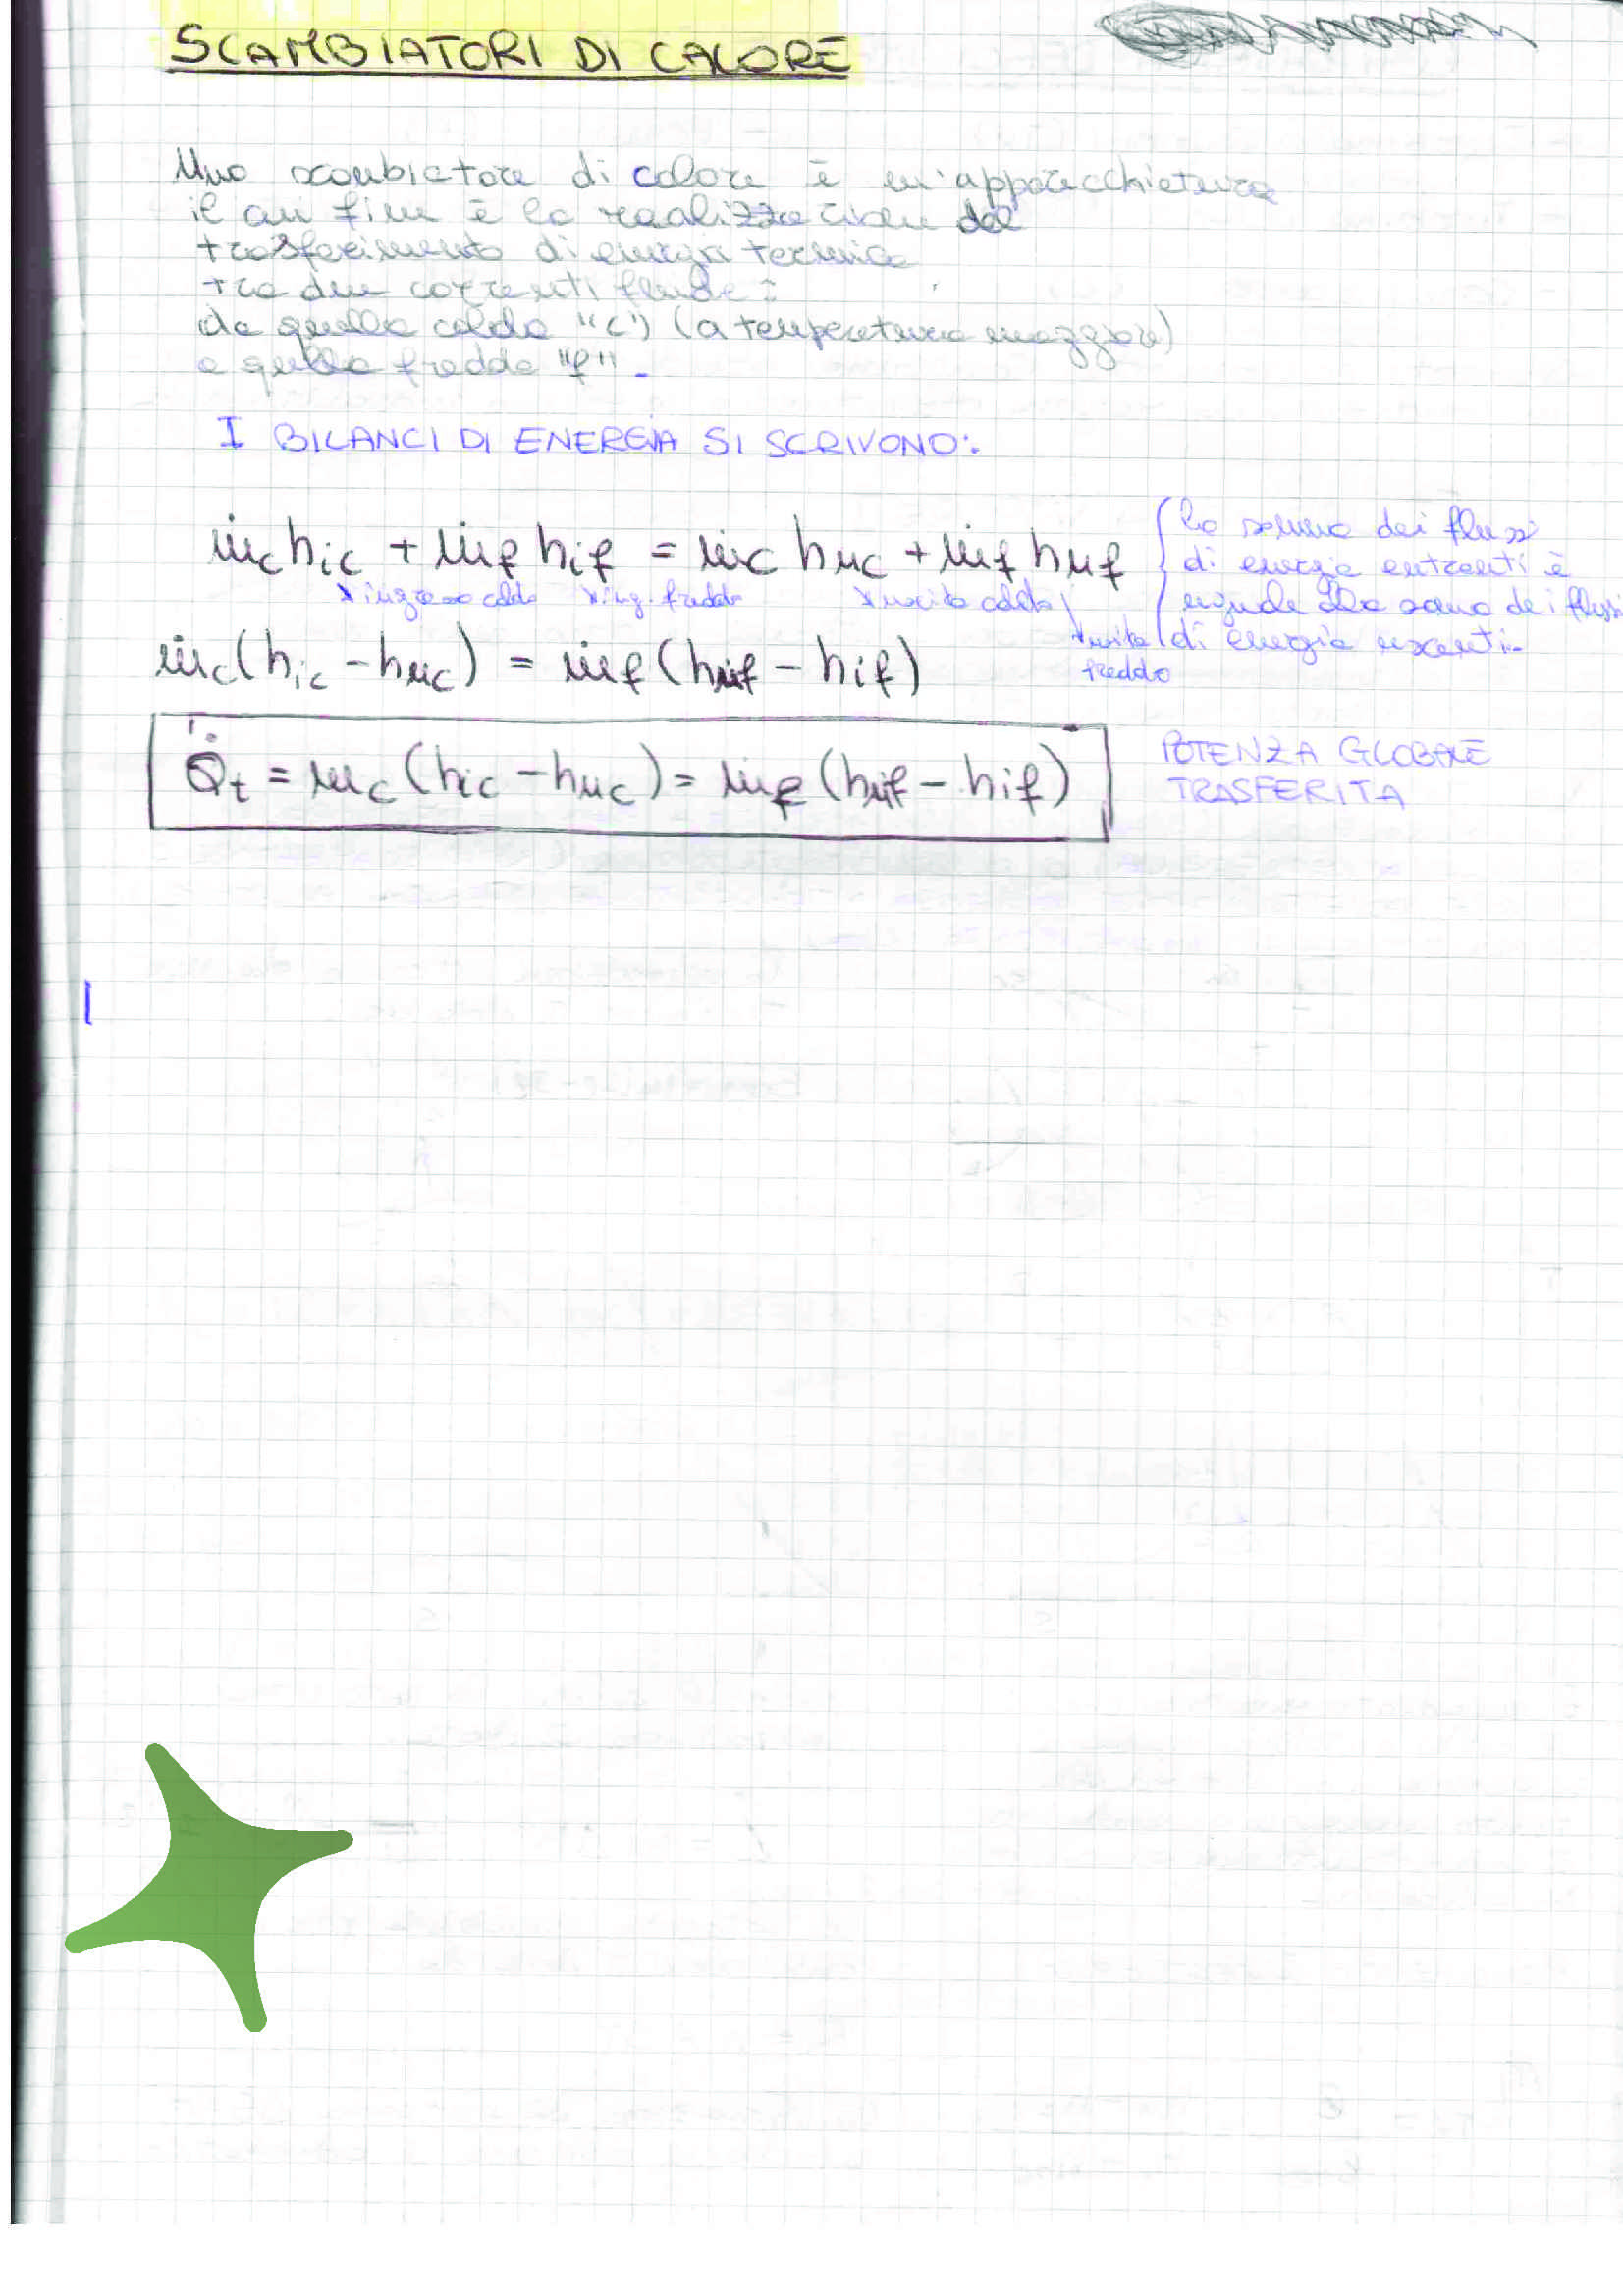 SCAMBIATORI DI CALORE
Uno scambiatore di calore è un'apparecchiatura
il cui fine è la realizzazione del
trasferimento di energia termica
tra due correnti fluide:
da quella calda "c") (a temperatura maggiore)
a quella fredda "f".
I BILANCI DI ENERGIA SI SCRIVONO:
ṁc hic + ṁf hif = ṁc huc + ṁf huf
ingresso caldo ing. freddo uscita caldo
uscita freddo
la somma dei flussi
di energia entranti è
uguale alla somma dei flussi
di energia uscenti.
ṁc(hic - huc) = ṁf(huf - hif)
Q̇t = ṁc(hic - huc) = ṁf(huf - hif)
POTENZA GLOBALE
TRASFERITA